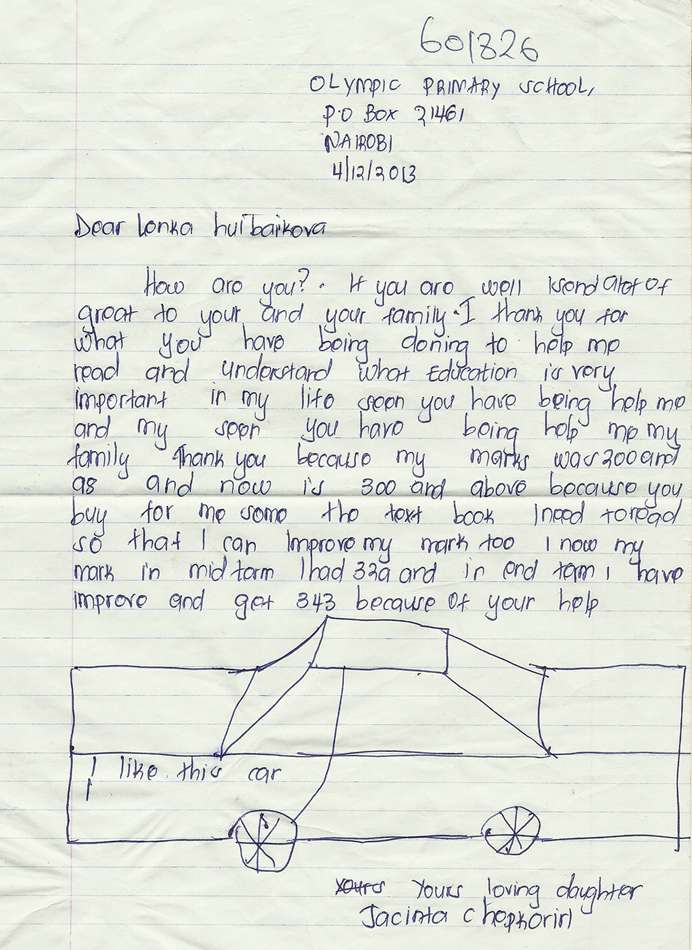 601826
OLYMPIC PRIMARY SCHOOL,
P.O BOX 21461
NAIROBI
4/12/2013
Dear Lonka
How are you? . If you are well I send alot of
great to your and your family. I thank you for
what you have being doning to help me
read and understard what Education is very
important in my life seen you have being help me
and my seen you have being help me my
family Thank you because my marks was 200 and
98 and now is 300 and above because you
buy for me some the text book I need to read
so that I can Improve my mark too I now my
mark in mid term I had and in end term I have
improve and get 343 because of your help
I like this car
Yours Yours loving daughter
Jacinta